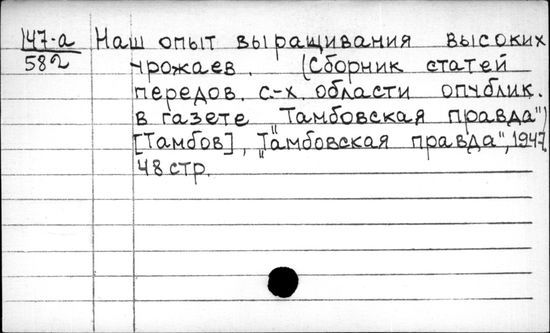 147-а
582
Наш опыт выращивания высоких
урожаев. (Сборник статей
передов. с.-х. области опублик.
в газете "Тамбовская правда")
[Тамбов], "Тамбовская правда", 1947.
48 стр.